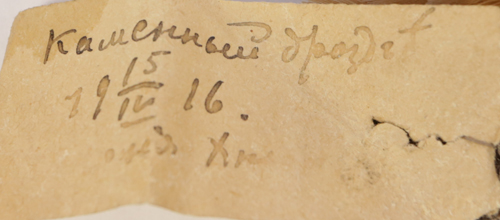 Каменный дроздъ
19 15/IV 16.